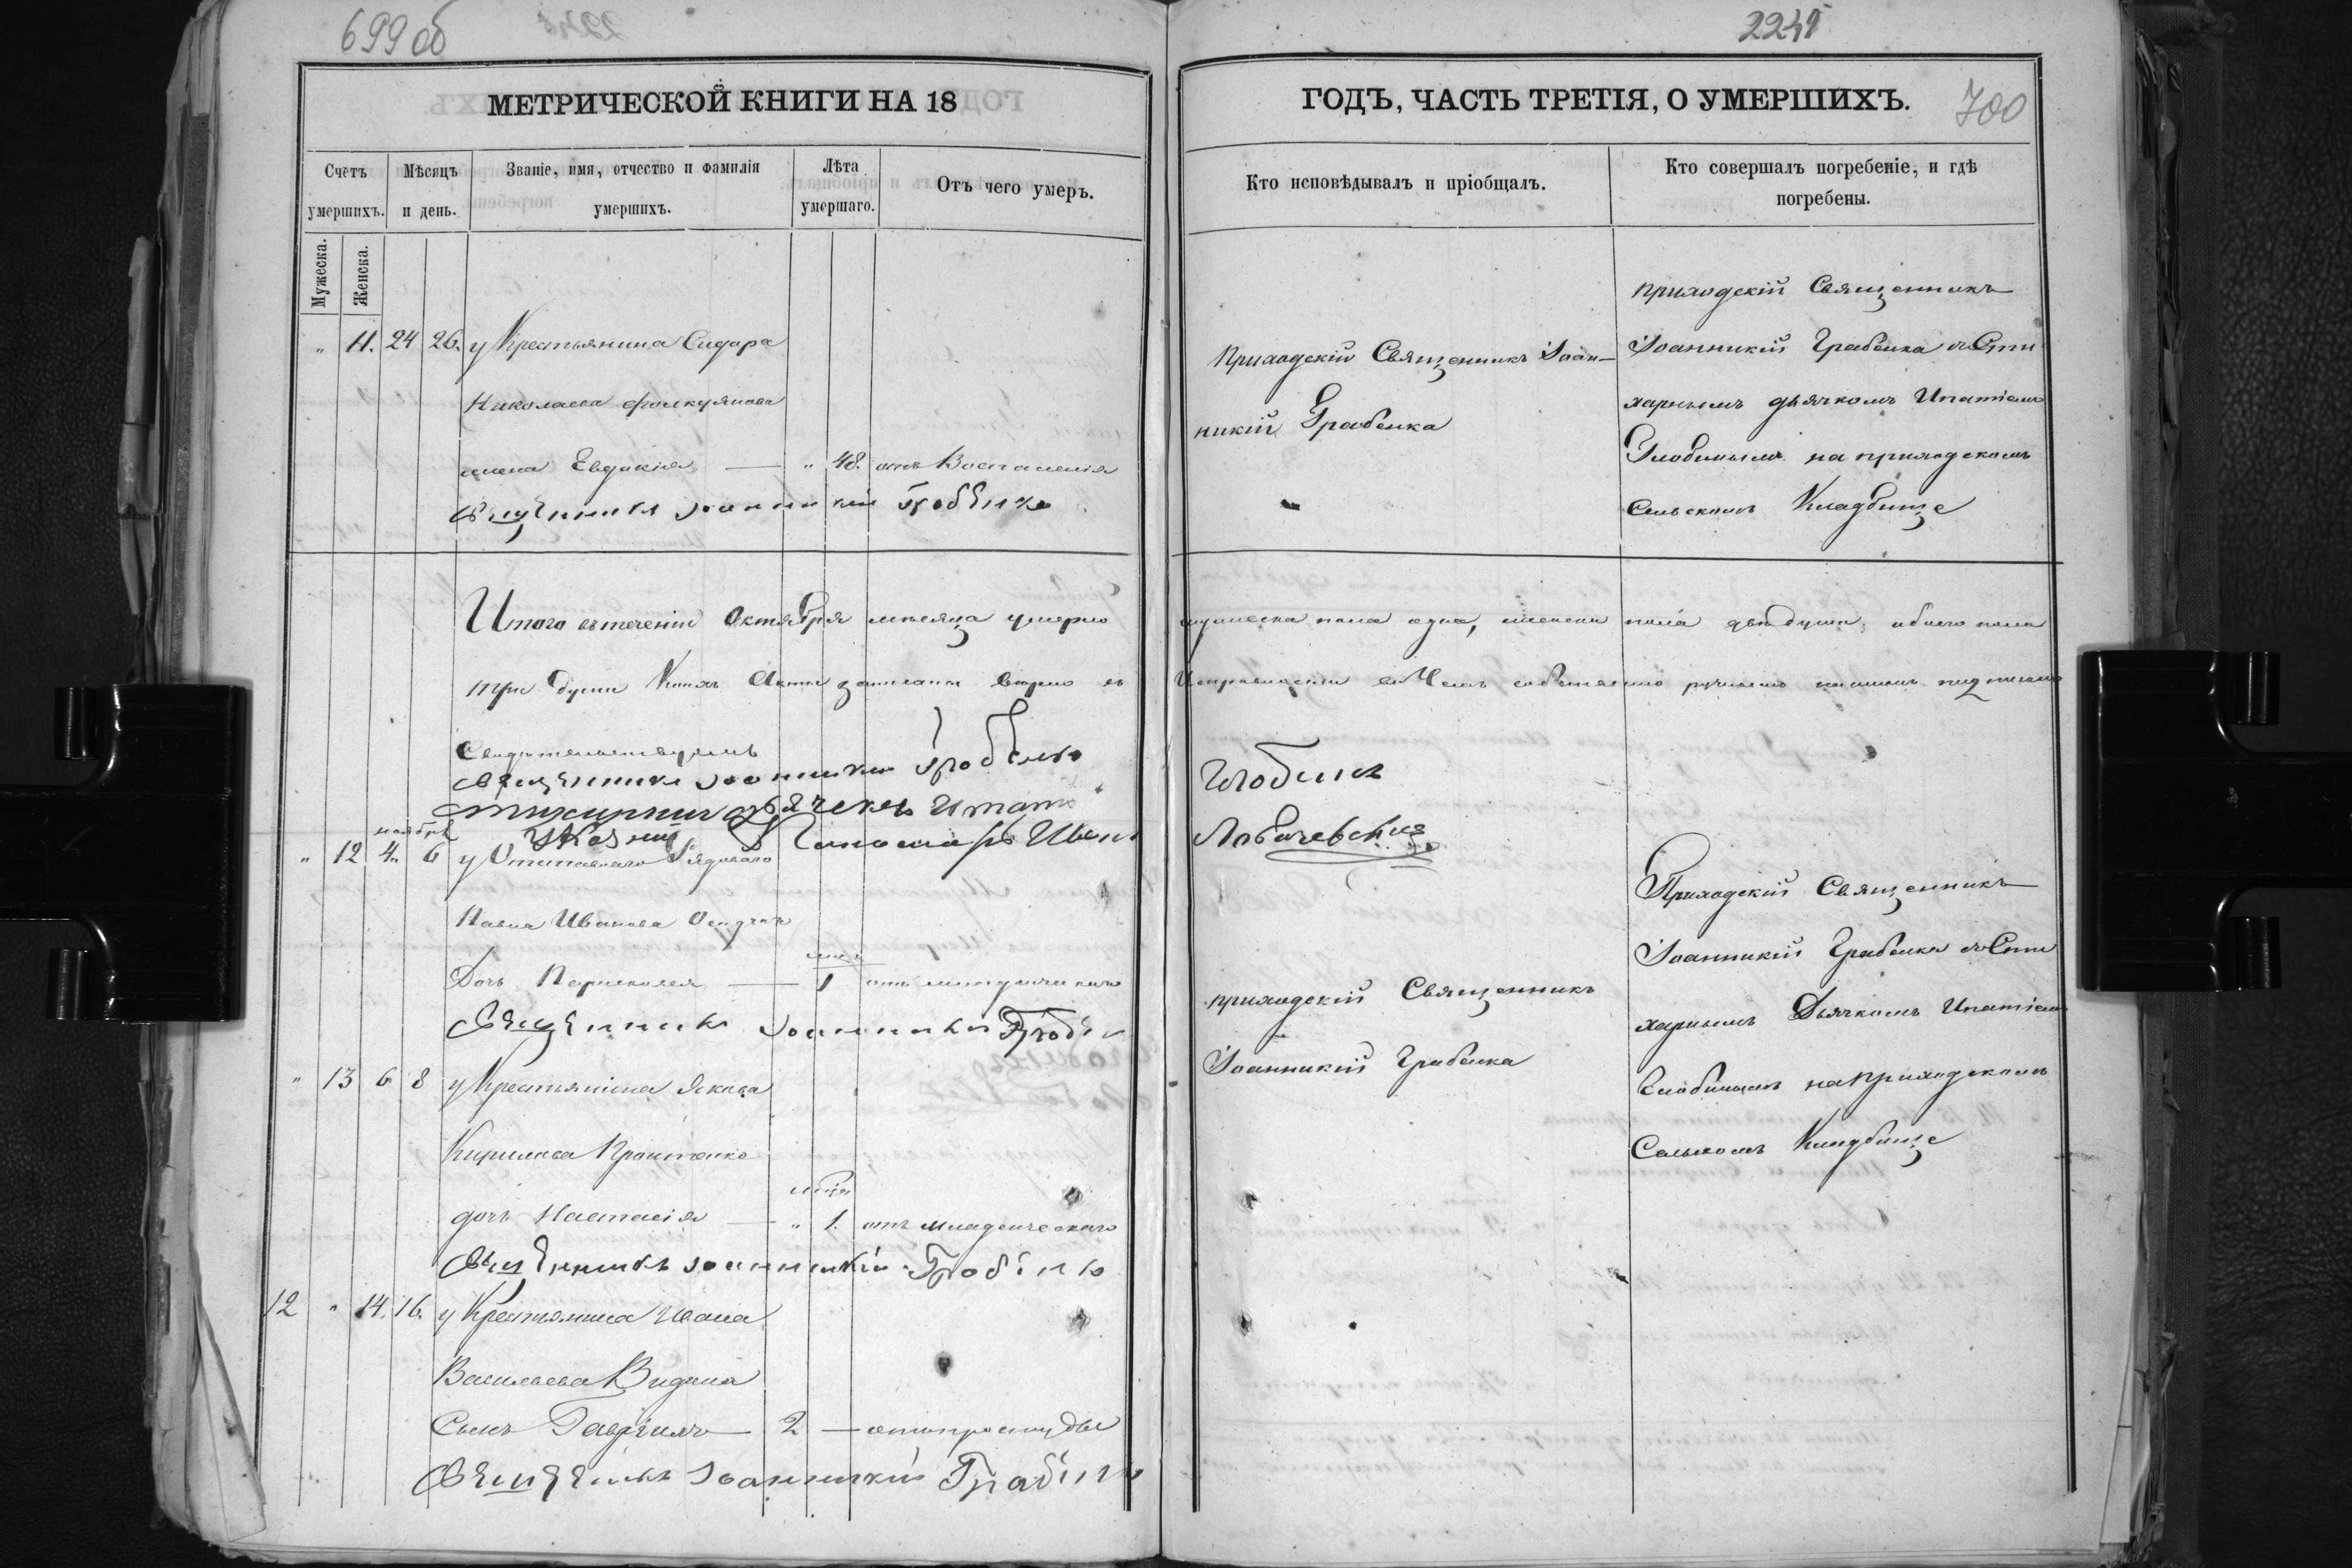 699 об
2245
МЕТРИЧЕСКОЙ КНИГИ НА 18
ГОДЪ, ЧАСТЬ ТРЕТІЯ, О УМЕРШИХЪ.
700
Счетъ умершихъ.
Мѣсяцъ и день.
Званіе, имя, отчество и фамилія умершихъ.
Лѣта умершаго.
Отъ чего умеръ.
Кто исповѣдывалъ и пріобщалъ.
Кто совершалъ погребеніе, и гдѣ погребены.
Мужеска.
Женска.
" 11. 24 26. у Крестьянина Сидора
Николаева
жена Евдокія — " 48. отъ Воспаленія
Священникъ Іоанникій Грабенко
Приходскій Священникъ Іоан-
никій Грабенка
приходскій Священникъ
Іоанникій Грабенка съ Сти
харнымъ дьячкомъ Ипатіемъ
Злобинымъ на приходскомъ
Сельскомъ Кладбище
Итого въ теченіи Октября месяца умерло
мужеска пола одна, женска пола две души, обоего пола
три души Коихъ Акты записаны верно въ
Исправности въ Чемъ подписомъ
Свидетельствуемъ
Священникъ Іоанникій Грабенко
Стихарный дьячекъ Ипатій
Злобинъ
Пономарь Иванъ
Лобачевскій
ноябрь
" 12 4. 6 у Отставнаго Рядоваго
Павла Иванова
Дочь Параскевія — 1 отъ младенческаго
Священникъ Іоанникій Грабенко
приходскій Священникъ
Іоанникій Грабенка
Приходскій Священникъ
Іоанникій Грабенка съ Сти
харнымъ Дьячкомъ Ипатіемъ
Злобинымъ на приходскомъ
Сельскомъ Кладбище
" 13 6 8 у Крестьянина Якова
Кирилова
дочь Настасія — " 1. отъ младенческаго
Священникъ Іоанникій Грабенко
12 " 14. 16. у Крестьянина Ивана
Васильева Видина
Сынъ Гавріилъ — 2 — отъ простуды
Священникъ Іоанникій Грабенко